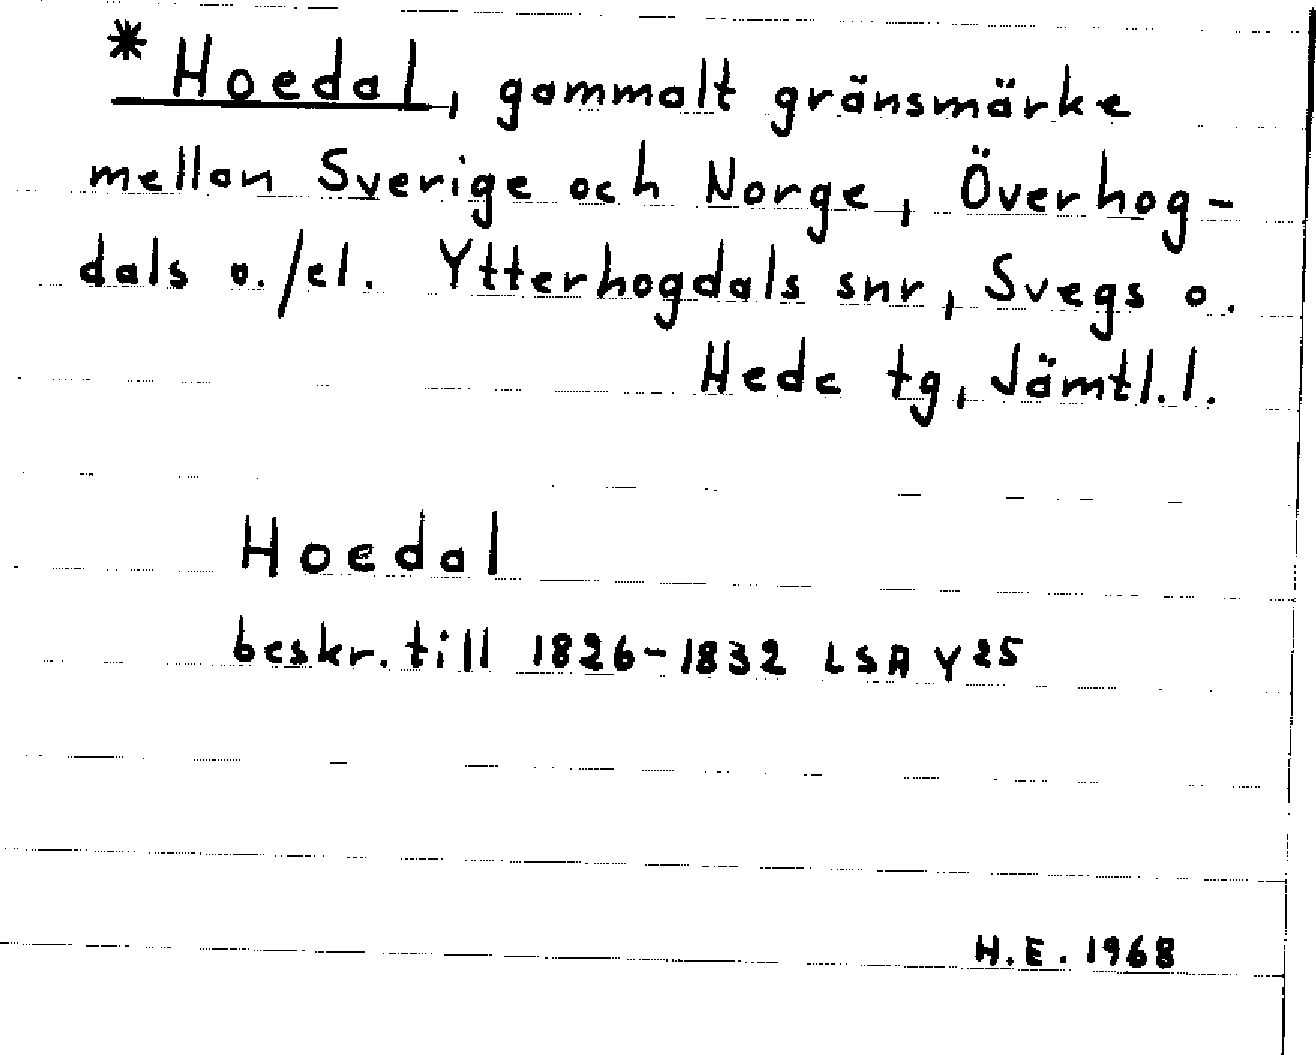 * Hoedal, gammalt gränsmärke
mellan Sverige och Norge, Överhog-
dals o./el. Ytterhogdals snr, Svegs o.
Hede tg, Jämtl.l.
Hoedal
beskr. till 1826-1832 LSA Y25
H.E. 1968